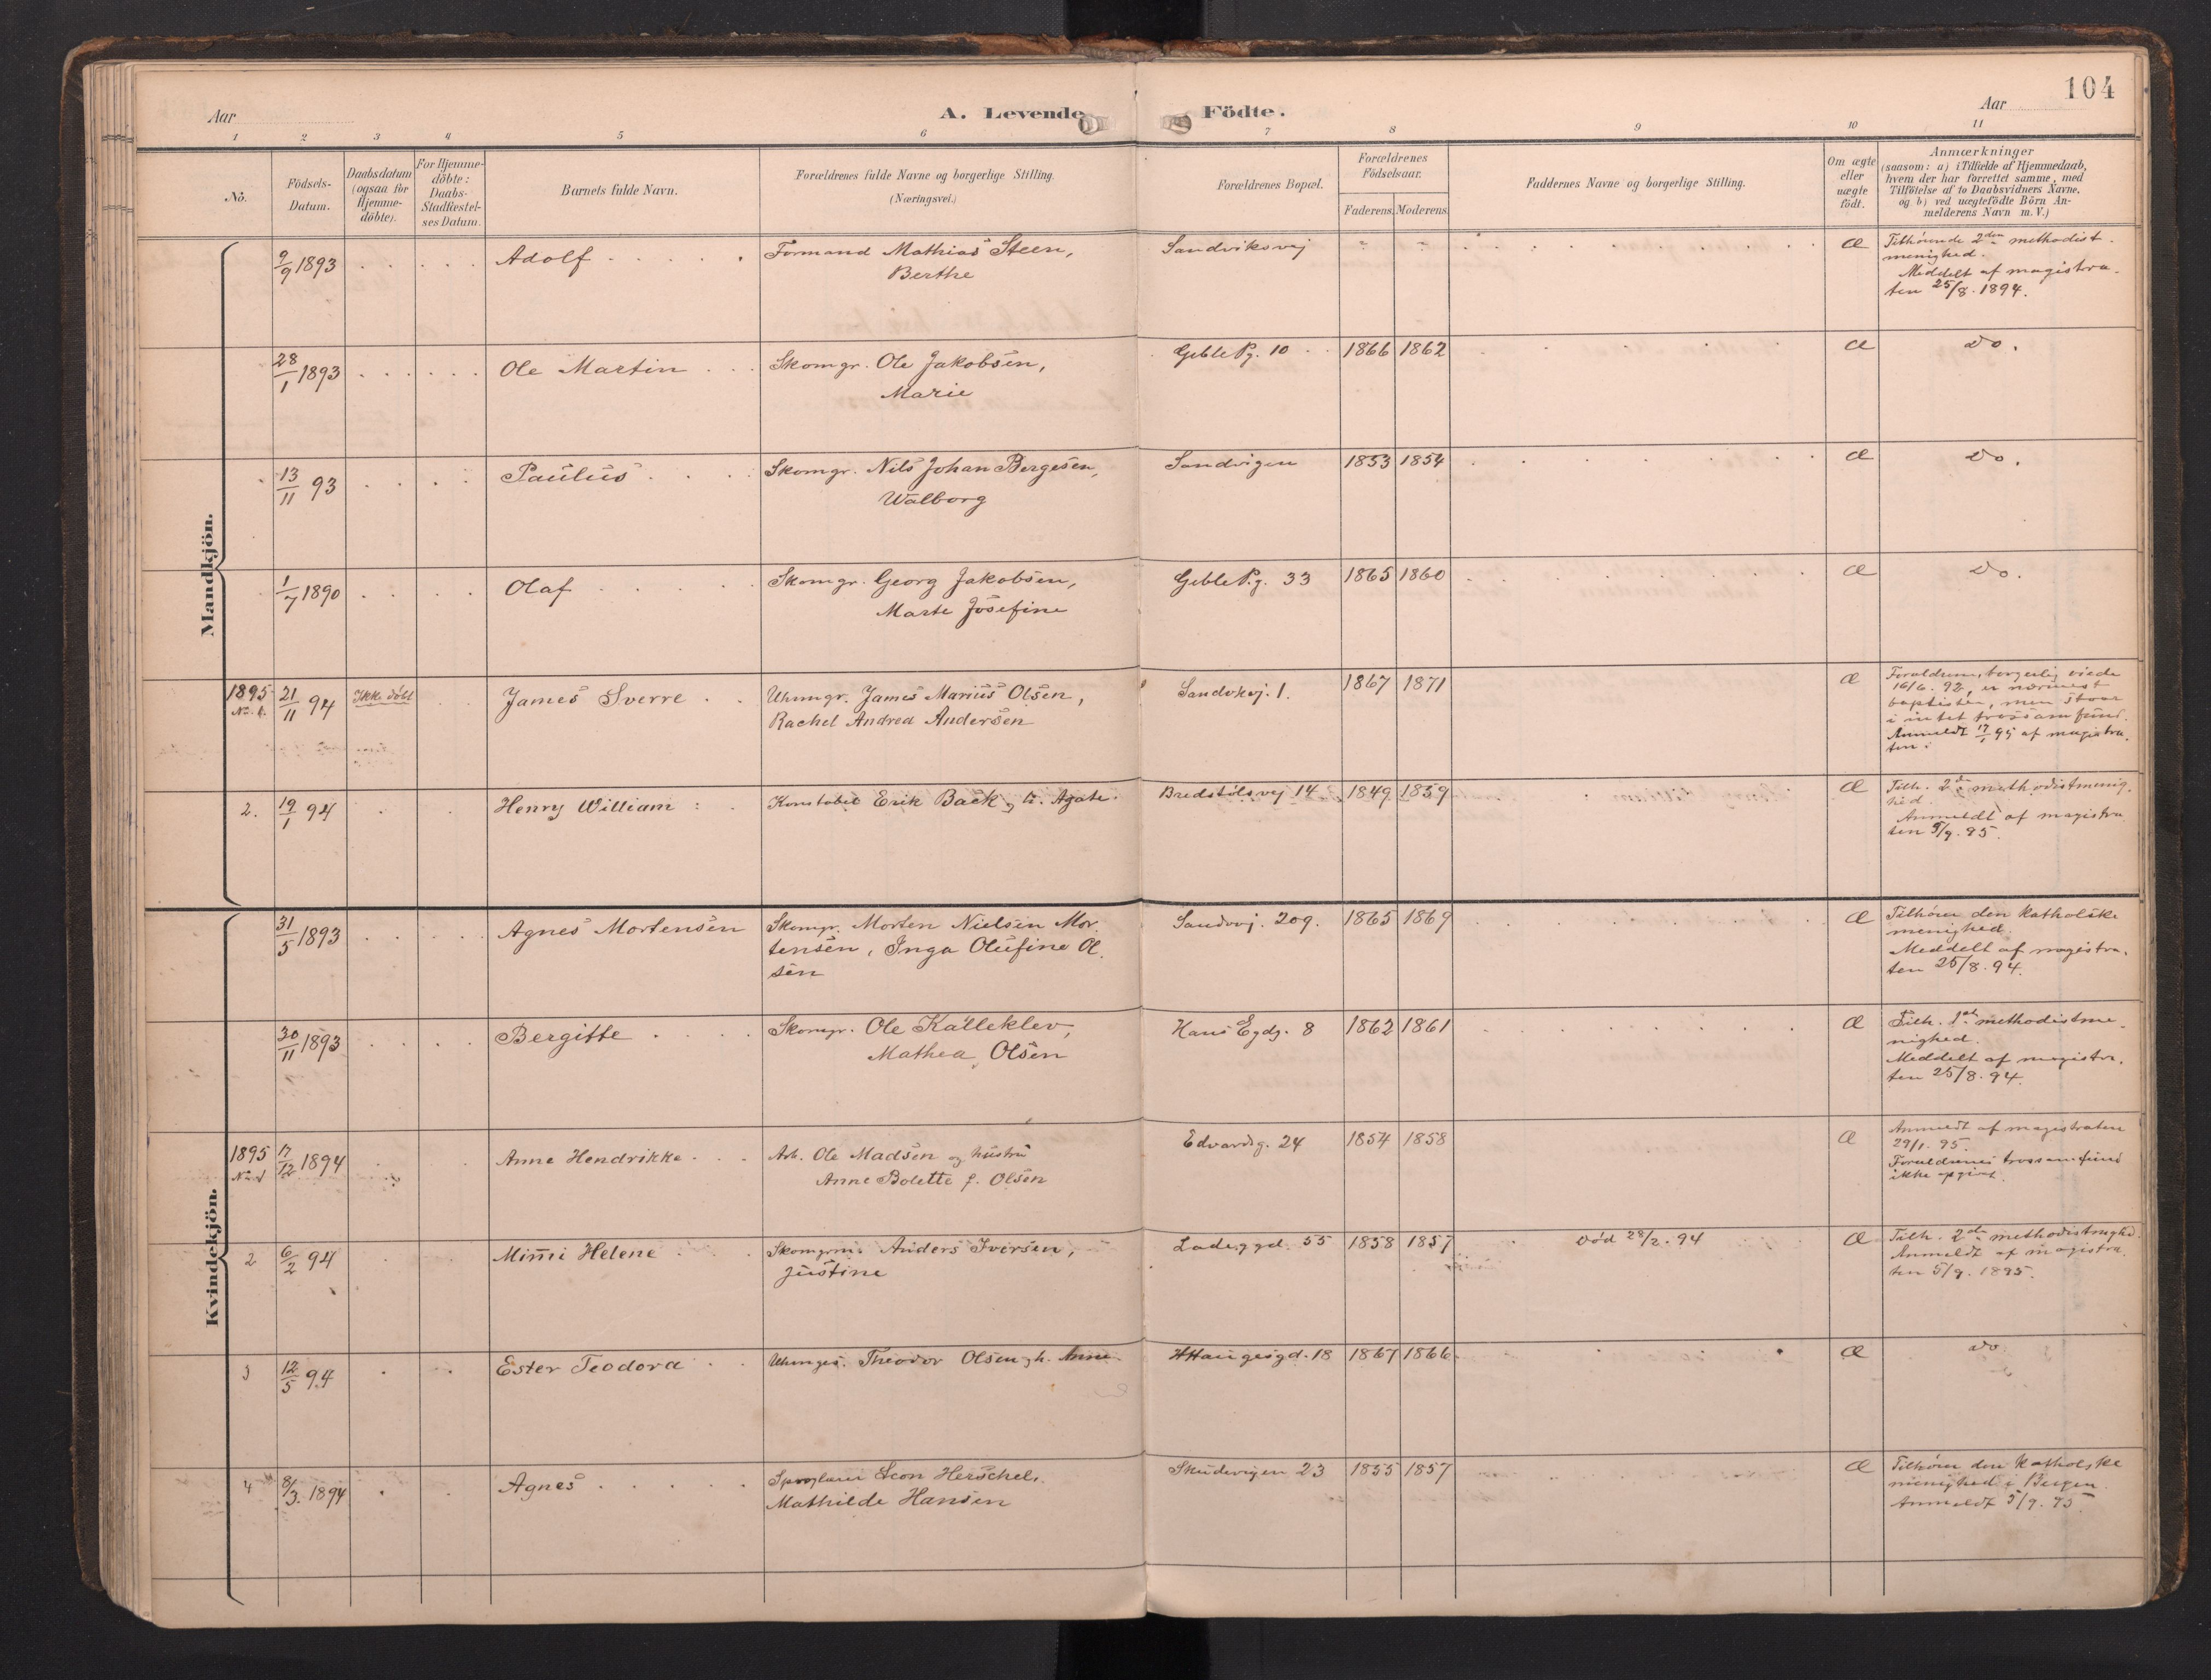 104
Aar
A. Levende Födte.
Aar
1 2 3 4 5 6 7 8 9 10 11
No.
Födsels-
Datum.
Daabsdatum
(ogsaa for
Hjemme-
döbte).
For Hjemme-
döbte:
Daabs-
Stadfæstel-
ses Datum.
Barnets fulde Navn.
Forældrenes fulde Navne og borgerlige Stilling.
(Næringsvei.)
Forældrenes Bopæl.
Forældrenes
Födselsaar.
Faderens. Moderens.
Faddernes Navne og borgerlige Stilling.
Om ægte
eller
uægte
födt.
Anmærkninger
(saasom: a) i Tilfælde af Hjemmedaab,
hvem der har forrettet samme, med
Tilföielse af to Daabsvidners Navne,
og b) ved uægtefödte Börn An-
melderens Navn m. V.)
Mandkjön.
9/9 1893 Adolf Formand Mathias Steen,
Berthe
Sandviksvej Æ
Tilhørende 2den methodist
menighed.
Meddelt af magistra-
ten 25/8. 1894.
28/1 1893 Ole Martin Skomgr. Ole Jakobsen,
Marie
Geble Pg. 10 1866 1862 Æ do.
13/11 93 Paulus Skomgr. Nils Johan Bergesen,
Walborg
Sandvigen 1853 1854 Æ do.
1/7 1890 Olaf Skomgr. Georg Jakobsen,
Marte Josefine
Geble P.g. 33 1865 1860 Æ do.
1895
No. 1. 21/11 94 Ikke døbt James Sverre Uhrmgr. James Marius Olsen,
Rachel Andrea Andersen
Sandvkvj. 1. 1867 1871 Æ
Forældrene, borgerlig viede
16/6. 92, er nærmest
baptister, men staar
i intet trossamfund.
Anmeldt 17/1 95 af magistra-
ten.
2. 19/1 94 Henry William Konstabel Erik Back, h. Agate
Bredstölsvej 14 1849 1859 Æ
Tilh. 2d methodistmenig-
hed.
Anmeldt af magistra
ten 5/9. 95.
Kvindekjön.
31/5 1893 Agnes Mortensen Skomgr. Morten Nielsen Mor-
tensen, Inga Olufine Ol-
sen
Sandvvj. 209. 1865 1869 Æ
Tilhører den katholske
menighed.
Meddelt af magistra-
ten 25/8. 94.
30/11 1893 Bergitte Skomgr. Ole Kalleklev,
Mathea Olsen
Hans Egdg. 8 1862 1861 Æ
Tilh. 1ste methodistme-
nighed.
Meddelt af magistra-
ten 25/8. 94.
1895
No. 1 17/12 1894 Anne Hendrikke Arb. Ole Madsen og hustru
Anne Bolette f. Olsen
Edvardsg. 24 1854 1858 Æ
Anmeldt af magistraten
29/1. 95.
Forældrenes trossamfund
ikke opgivet.
2 6/2 94 Mimi Helene Skomgrm. Anders Iversen,
Justine
Ladeggd. 55 1858 1857 Död 28/2. 94 Æ
Tilh. 2de methodistmghd.
Anmeldt af magistra
ten 5/9. 1895.
3 12/5 94 Ester Teodora Theodor Olsen, h. Anne
H Haugesgd. 18 1867 1866 Æ do
4 8/3. 1894 Agnes Sproglærer Leon Herschel,
Mathilde Hansen
Skudevigen 23 1855 1857 Æ
Tilhører den katholske
menighed i Bergen.
Anmeldt 5/9. 95